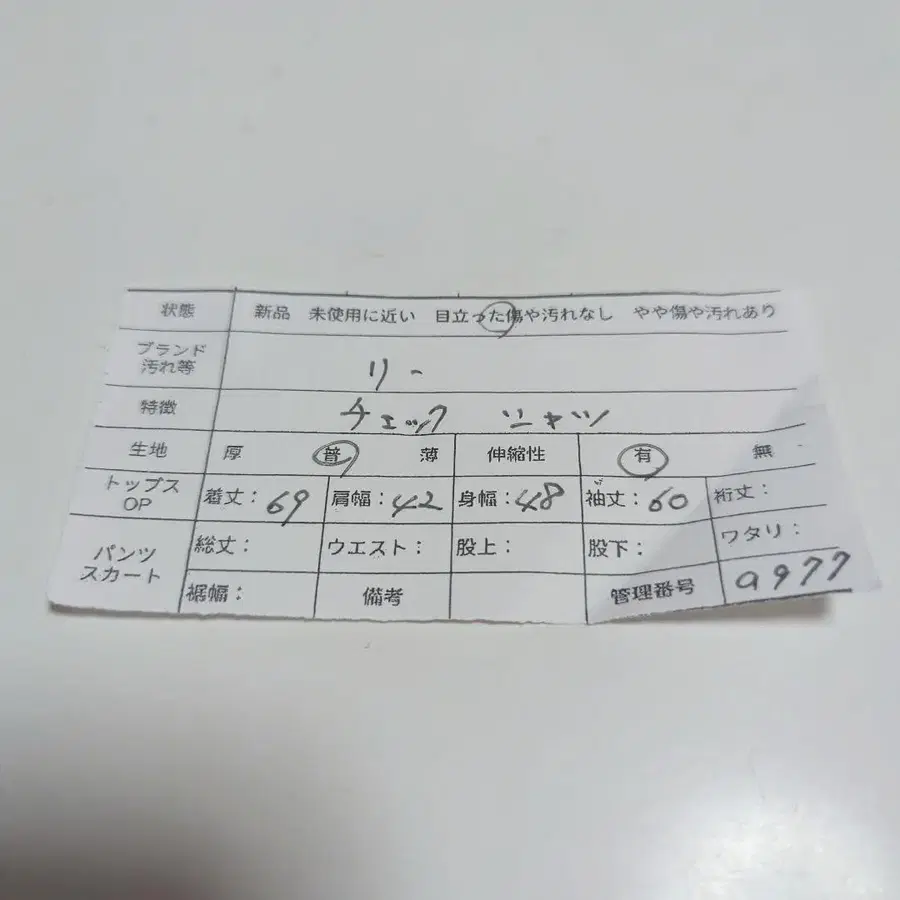 状態 新品 未使用に近い 目立った傷や汚れなし やや傷や汚れあり
ブランド
汚れ等 リー
特徴 チェック シャツ
生地 厚 普 薄 伸縮性 有 無
トップス
OP 着丈：69 肩幅：42 身幅：48 袖丈：60 裄丈：
パンツ
スカート 総丈： ウエスト： 股上： 股下： ワタリ：
裾幅： 備考 管理番号 a977